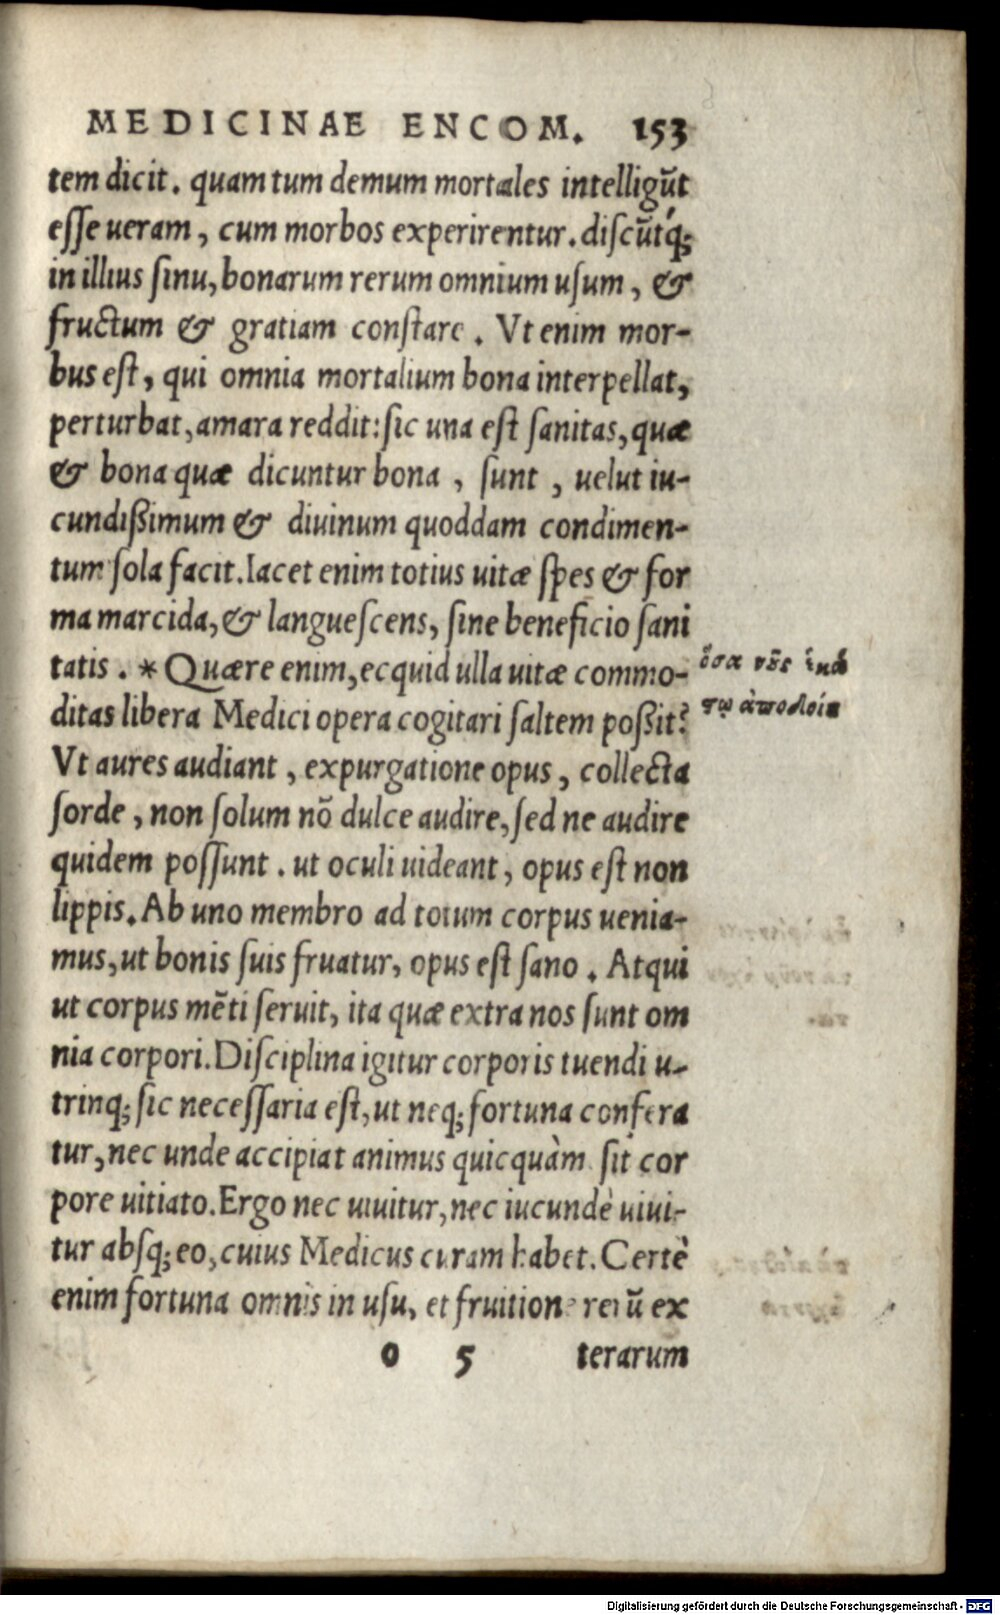 MEDICINAE ENCOM. 153
tem dicit. quam tum demum mortales intelligūt
esse ueram, cum morbos experirentur. discūtq́;
in illius sinu, bonarum rerum omnium usum, &
fructum & gratiam constare. Vt enim mor-
bus est, qui omnia mortalium bona interpellat,
perturbat, amara reddit: sic una est sanitas, quæ
& bona quæ dicuntur bona, sunt, uelut iu-
cundißimum & diuinum quoddam condimen-
tum sola facit. Iacet enim totius uitæ spes & for
ma marcida, & languescens, sine beneficio sani
tatis. * Quære enim, ecquid ulla uitæ commo-
ditas libera Medici opera cogitari saltem poßit?
Vt aures audiant, expurgatione opus, collecta
sorde, non solum nō dulce audire, sed ne audire
quidem possunt. ut oculi uideant, opus est non
lippis. Ab uno membro ad totum corpus uenia-
mus, ut bonis suis fruatur, opus est sano. Atqui
ut corpus mēti seruit, ita quæ extra nos sunt om
nia corpori. Disciplina igitur corporis tuendi u-
trinq; sic necessaria est, ut neq; fortuna confera
tur, nec unde accipiat animus quicquàm sit cor
pore uitiato. Ergo nec uiuitur, nec iucundè uiui-
tur absq; eo, cuius Medicus curam habet. Certè
enim fortuna omnis in usu, et fruitione rerū ex
o 5 terarum
ὅσα